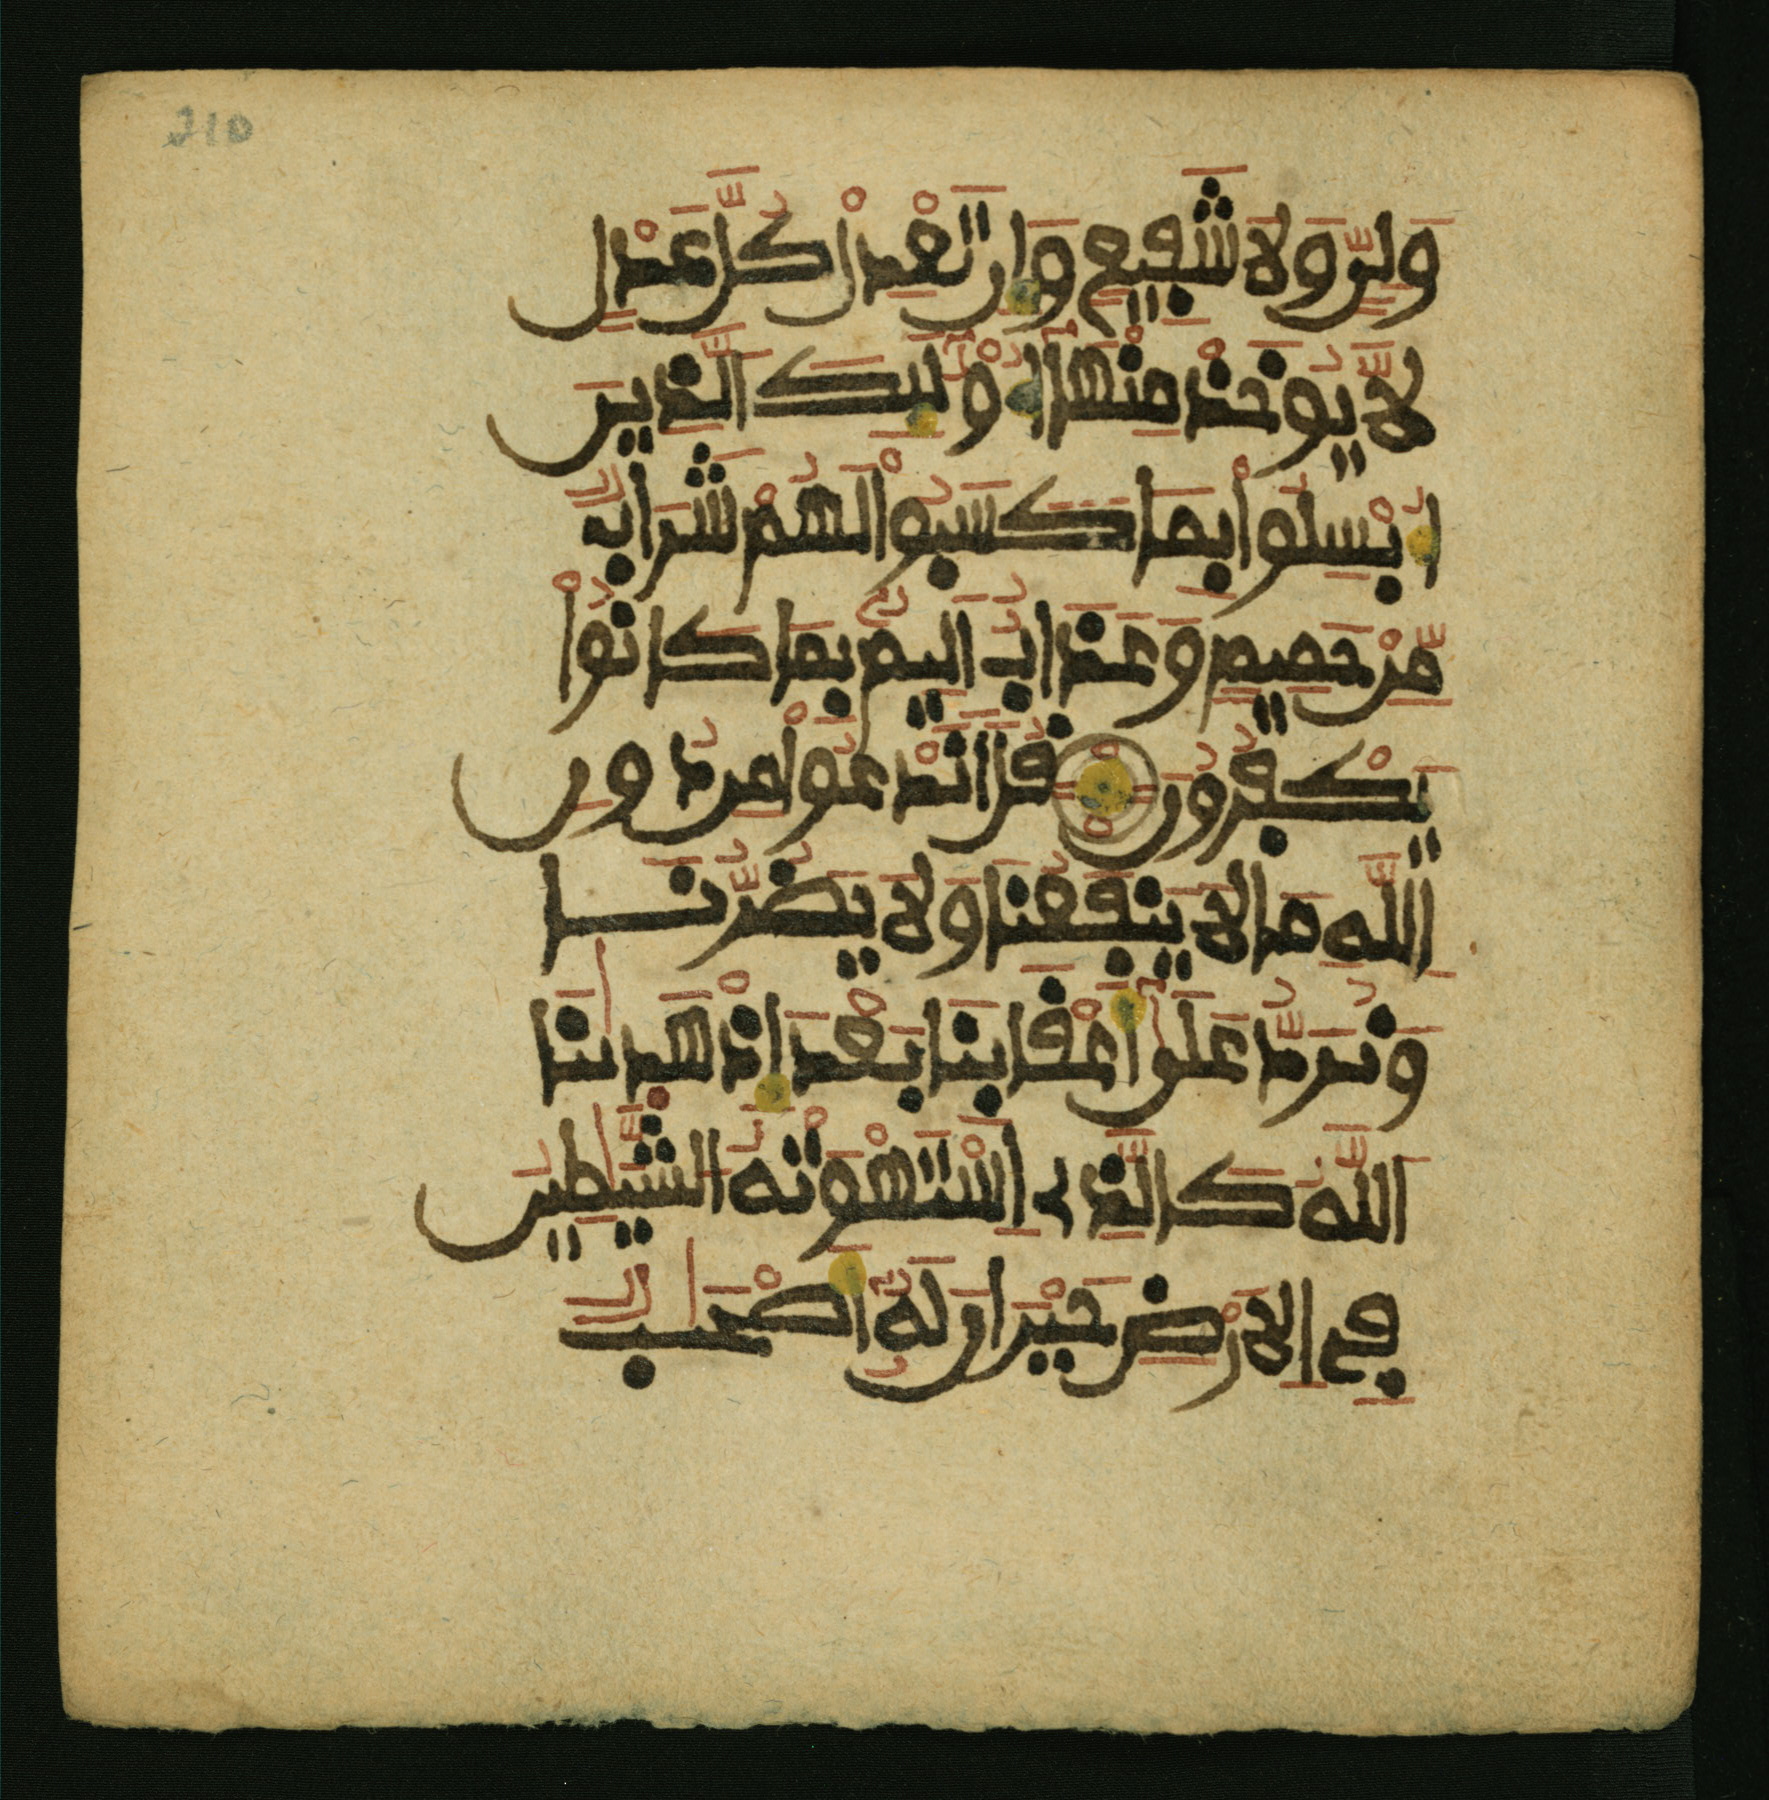 210
وَلِيٌّ وَلَا شَفِيعٌ وَإِن تَعْدِلْ كُلَّ عَدْلٍ
لَّا يُوخَذْ مِنْهَآ أُوْلَٰٓئِكَ الَّذِينَ
أُبْسِلُواْ بِمَا كَسَبُواْ لَهُمْ شَرَابٌ
مِّنْ حَمِيمٍ وَعَذَابٌ أَلِيمٌ بِمَا كَانُواْ
يَكْفُرُونَ قُلَ اَنَدْعُواْ مِن دُونِ
اِللَّهِ مَا لَا يَنفَعُنَا وَلَا يَضُرُّنَا
وَنُرَدُّ عَلَىٰٓ أَعْقَابِنَا بَعْدَ إِذْ هَدَىٰنَا
اَللَّهُ كَالَّذِي اِسْتَهْوَتْهُ الشَّيَٰطِينُ
فِي اِلَارْضِ حَيْرَانَ لَهُۥٓ أَصْحَٰبٌ